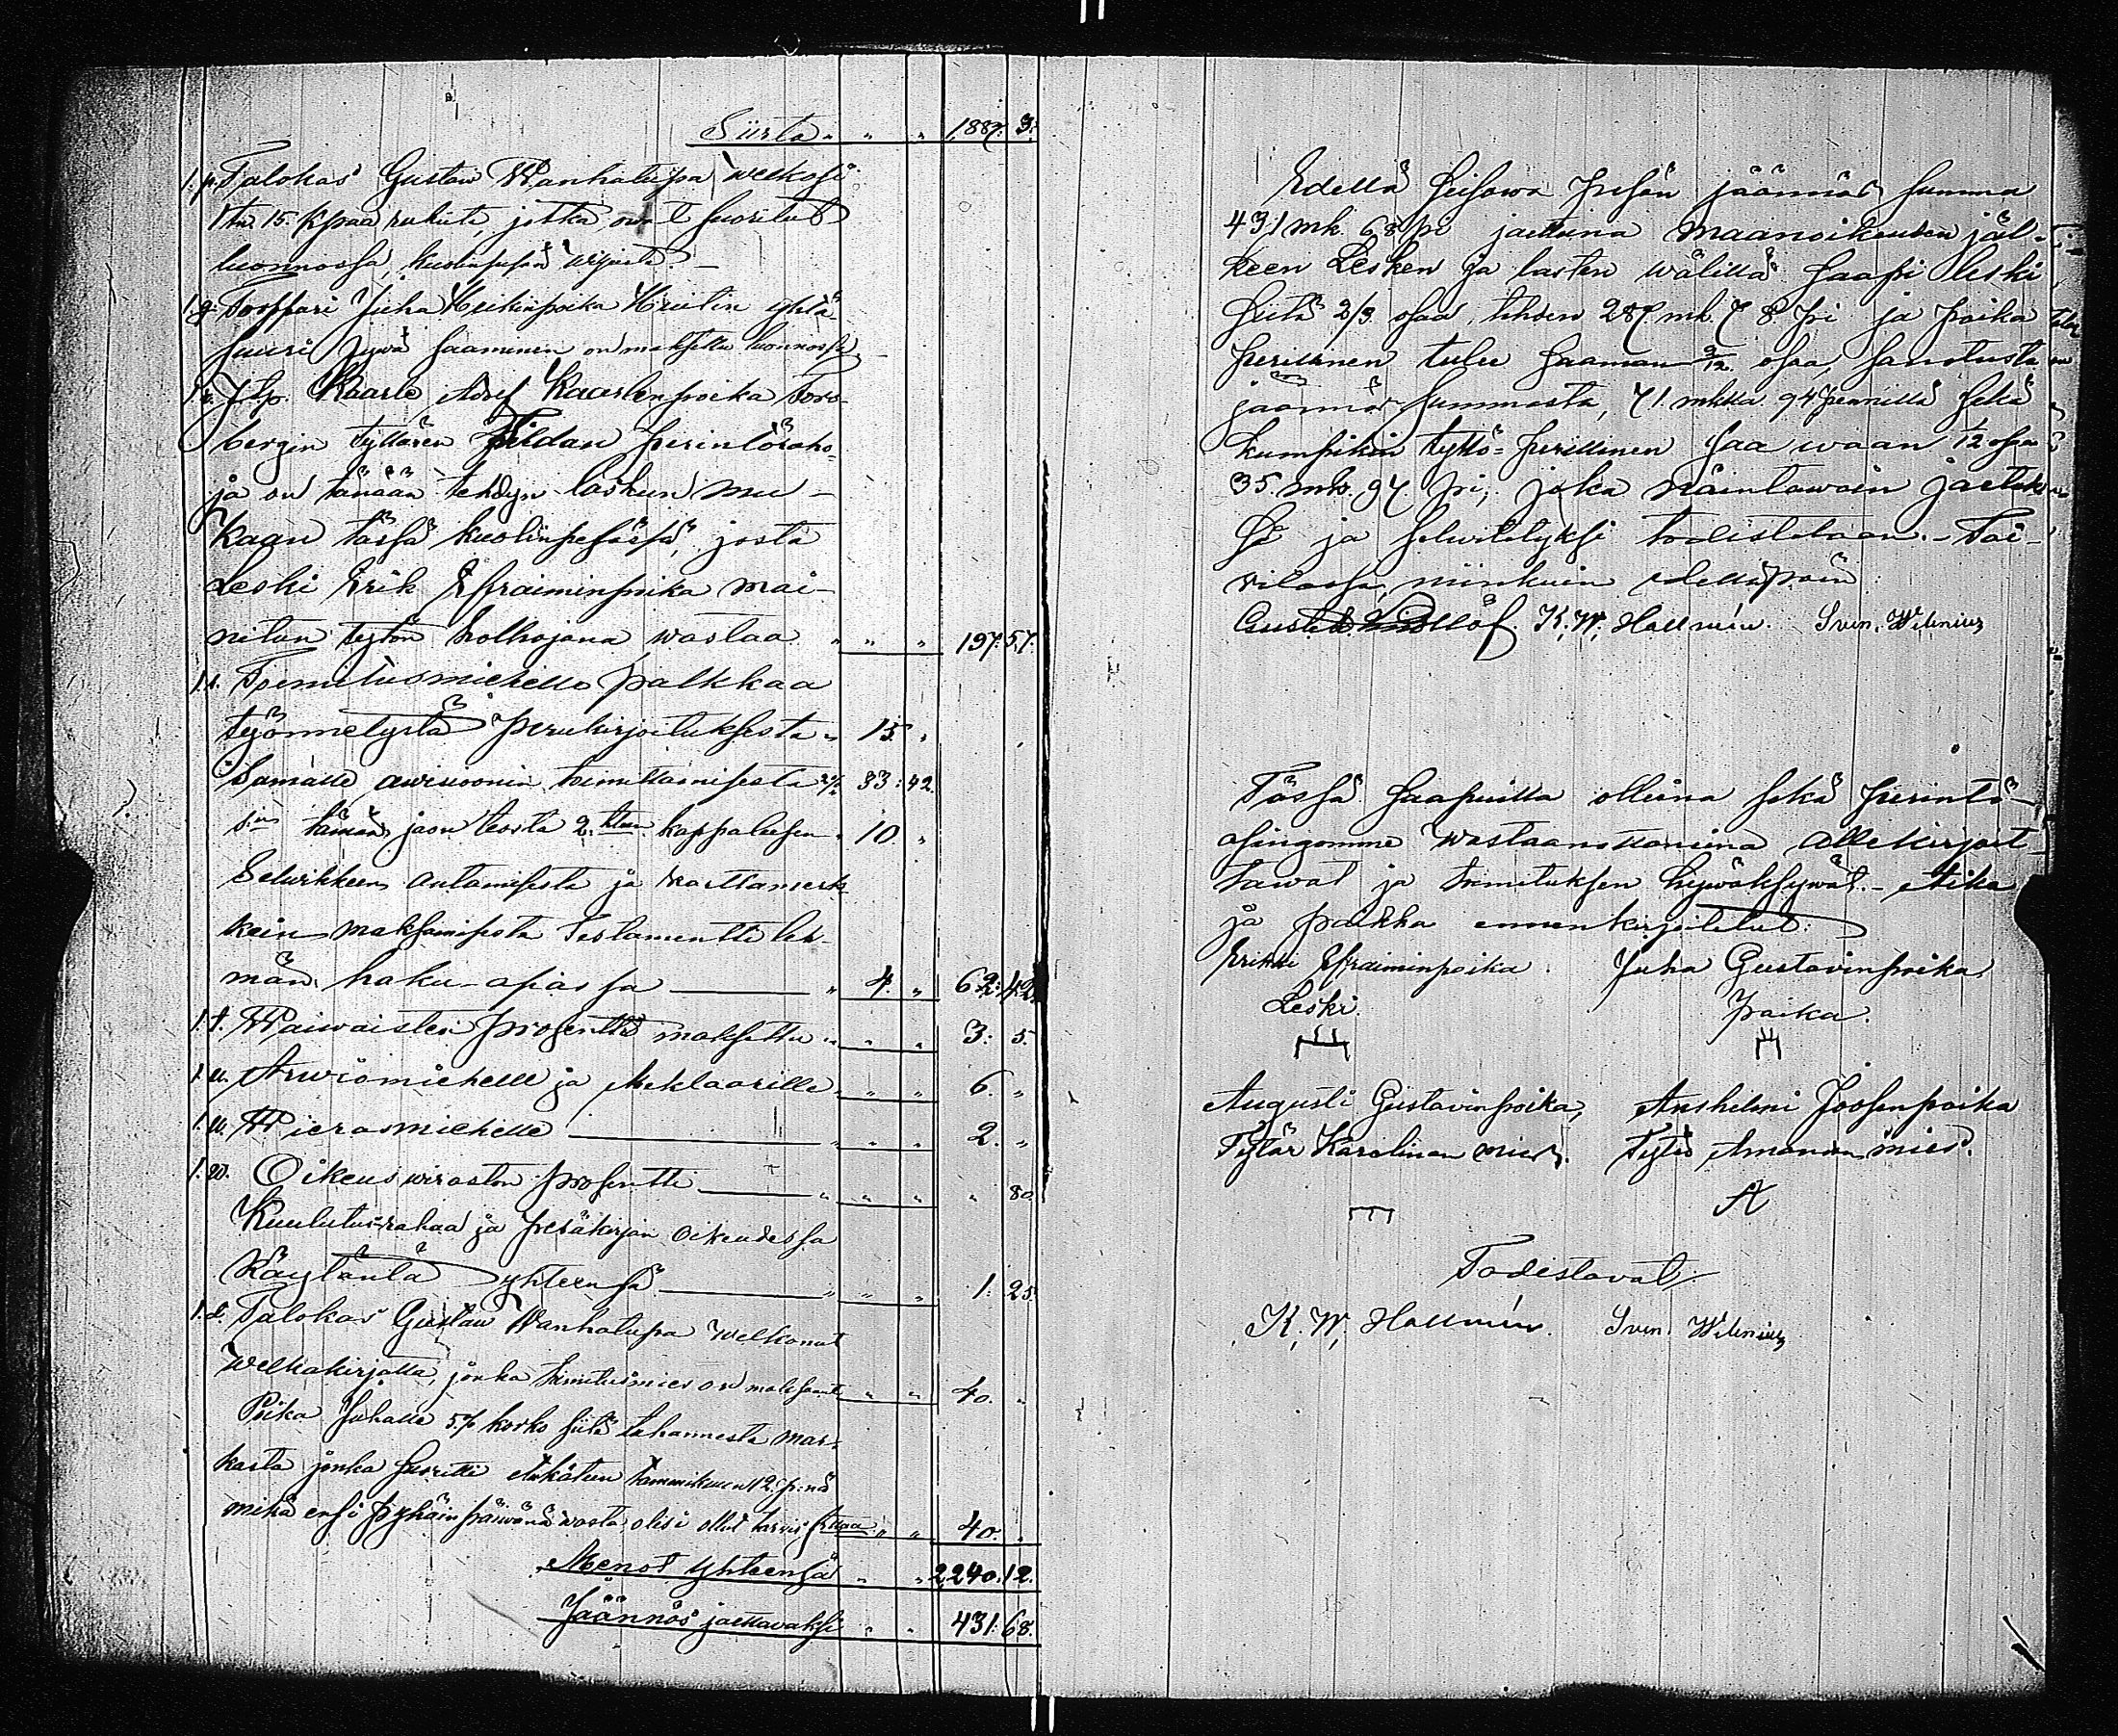 Siirto " " " 1,887: 3.
1:p. Talokas Gustav Wanhatupa welkosi
1 tn. 15. kpaa rukiita, jotka owat suoritut
luonnossa, kuolinpesän wijasta. —
1:q. Torppari Juha Heikinpoika Hiiitin yhtä
suuri jywä saaminen on maksettu luonnossa
1:r. Itp. Kaarle Adolf Kaarlenpoika Fors-
bergin tyttären Hildan perintöraho-
ja on tänään tehdyn laskun mu-
kaan tässä kuolinpesässä, josta
Leski Erik Efraiminpoika mai-
nitun tytön holhojana wastaa " " " 197: 57.
1:s. Toimitusmiehelle palkkaa
työnnetystä perukirjoituksesta " 15. "
Samalle arwioonin toimittamisesta 2% 33: 42.
S:n tämän jaon teosta 2:hteen kappaleesen " 10. "
Selwikkeen antamisesta ja karttamerk-
kein maksamisesta Testamentti leh-
män haku-apiassa " 4. " 62: 42.
1:t. Waiwaisten prosenttiä maksettu " " " 3: 5.
1:u. Arwiomiehelle ja Meklaarille " " " 6. "
1:v. Wierasmiehelle " " " 2. "
1:w. Oikeus wiraston prosentti " " " " 80.
Kuulutus-rahaa ja pesäkirjan oikeudessa
käytäntä yhteensä " " " 1: 25.
1:x. Talokas Gustav Wanhatupa welkonut
welkakirjalla, jonka toimitusmies on maksanut " " 40. "
Poika Juhalle 5.% korko siitä tuhannesta mar-
kasta jonka suoritti etukäteen tammikuun 12. p:nä
mikä ensi pyhäinpäiwänä wasta olisi ollut tarwis " " 40. "
Menot yhteensä " " 2,240: 12.
Jäännös jaettawaksi " " 431: 68.
Edellä seisowa pesän jäännös summa
431 mk. 68 pi jaettuna Maanoikeuden jäl-
keen Lesken ja lasten wälillä saapi leski
siitä 2/3 osaa, tehden 287. mk. 78. pi ja poika
perillinen tulee saamaan 2/12. osaa, sanotusta
jäännös summasta, 71. mkkaa 94 penniä sekä
kumpikin tyttö-perillinen saa waan 1/12 osaa
35. mk. 97. pi, joka näintawoin jaetuk-
si ja selwitetyksi todistetaan. - Toi-
vilassa niinkuin edelläpäin
Gustaf Lindlöf. K. W. Hallmén. Sven. Wilenius
Tässä saapuilla olleina sekä perintö-
osingomme wastaanottaneina allekirjoit-
tawat ja toimituksen hywäksywät. - Aika
ja paikka ennenkirjoitetut:
Erikki Efraiminpoika. Juha Gustavinpoika
Leski. Poika.
Augusti Gustavinpoika, Anshelmi Joosenpoika
Tytär Karolinan mies. Tytär Amandan mies.
A
Todistavat
K. W. Hallmén. Sven. Wilenius